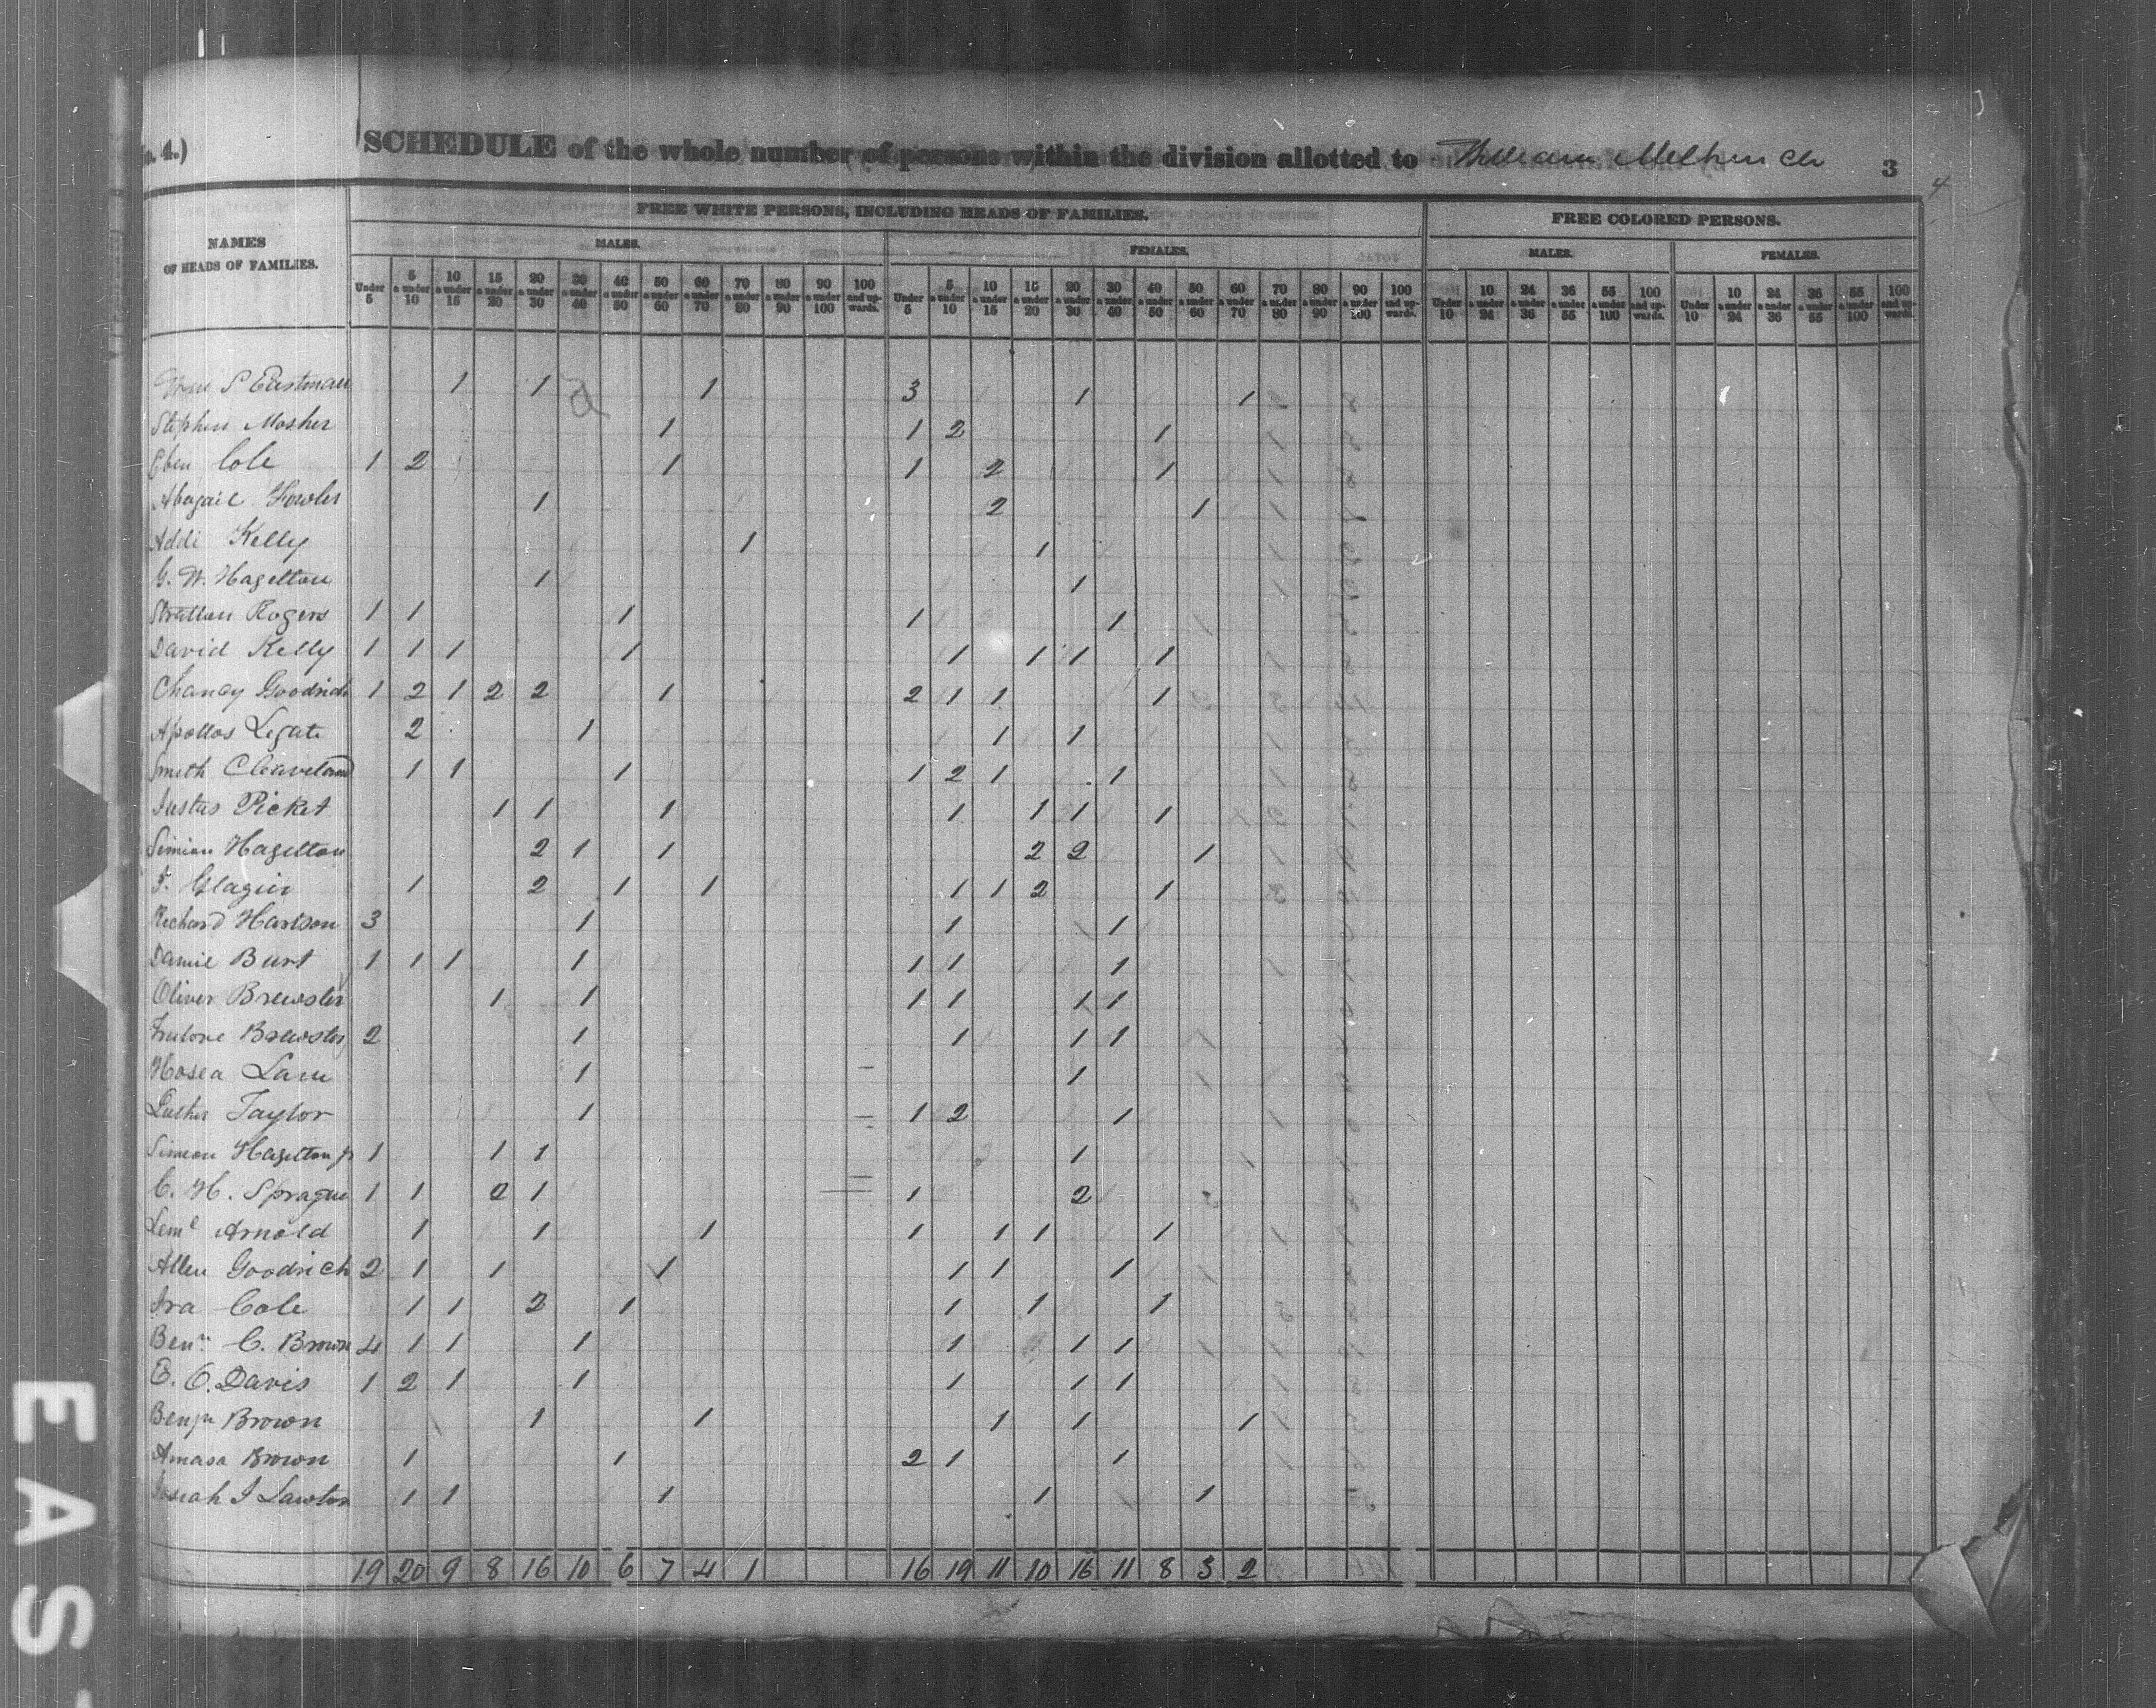 4.)
SCHEDULE of the whole number of persons within the division allotted to William 3
4
NAMES OF HEADS OF FAMILIES.
FREE WHITE PERSONS, INCLUDING HEADS OF FAMILIES.
FREE COLORED PERSONS.
MALES. FEMALES. MALES. FEMALES.
Under 5 | 5 & under 10 | 10 & under 15 | 15 & under 20 | 20 & under 30 | 30 & under 40 | 40 & under 50 | 50 & under 60 | 60 & under 70 | 70 & under 80 | 80 & under 90 | 90 & under 100 | 100 and upwards. | Under 5 | 5 & under 10 | 10 & under 15 | 15 & under 20 | 20 & under 30 | 30 & under 40 | 40 & under 50 | 50 & under 60 | 60 & under 70 | 70 & under 80 | 80 & under 90 | 90 & under 100 | 100 and upwards. | Under 10 | 10 & under 24 | 24 & under 36 | 36 & under 55 | 55 & under 100 | 100 and upwards. | Under 10 | 10 & under 24 | 24 & under 36 | 36 & under 55 | 55 & under 100 | 100 and upwards.
S Eastman 1 1 1 3 1 1
Stephen Mosher 1 1 2 1
Eben Cole 1 2 1 1 2 1
Abagail Fowler 1 2 1
Addi Kelly 1 1
G. W. Hagelton 1 1
Stratton Rogers 1 1 1 1 1
David Kelly 1 1 1 1 1 1 1 1
Chancy Goodrich 1 2 1 2 2 1 2 1 1 1
Apollos Legate 2 1 1 1
Smith Cleaveland 1 1 1 1 2 1 1
Justus Picket 1 1 1 1 1 1 1
Simion Hagelton 2 1 1 2 2 1
F. Glagier 1 2 1 1 1 1 2 1
Richard Harlson 3 1 1 1
Daniel Burt 1 1 1 1 1 1 1
Oliver Brewster 1 1 1 1 1 1
Brewster 2 1 1 1 1
Hosea Lam 1 1
Luther Taylor 1 1 2 1
Simeon Hagelton jr 1 1 1 1
C. H. Sprague 1 1 2 1 1 2
Leml Arnold 1 1 1 1 1 1 1
Allen Goodrich 2 1 1 1 1 1 1
Ira Cole 1 1 2 1 1 1 1
Benn. C. Brown 4 1 1 1 1 1 1
E. C. Davis 1 2 1 1 1 1 1
Benjn Brown 1 1 1 1 1
Amasa Brown 1 1 2 1 1
Josiah J Lawton 1 1 1 1 1
19 20 9 8 16 10 6 7 4 1 16 19 11 10 16 11 8 3 2
EAS